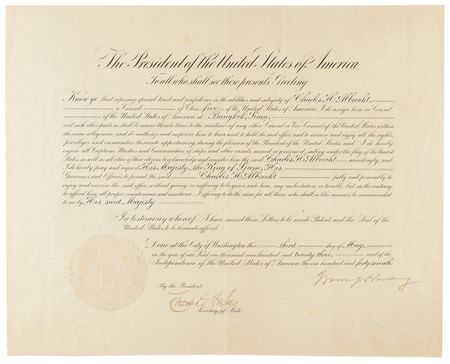 The President of the United States of America.
To all who shall see these presents, Greeting:
Know ye, that reposing special trust and confidence in the abilities and integrity of Charles H. Albrecht,
a Consul of Class five of the United States of America, I do assign him as Consul
of the United States of America at Bangkok, Siam,
and such other parts as shall be nearer thereto than to the residence of any other Consul or Vice Consul of the United States within
the same allegiance, and do authorize and empower him to have and to hold the said office, and to exercise and enjoy all the rights,
privileges and emoluments thereunto appertaining, during the pleasure of the President of the United States, and I do hereby
enjoin all Captains, Masters and Commanders of ships and other vessels, armed or unarmed, sailing under the flag of the United
States, as well as all other of their citizens, to acknowledge and consider him the said Charles H. Albrecht accordingly, and
I do hereby pray and request His Majesty, the King of Siam, His
Governors and Officers to permit the said Charles H. Albrecht fully and peaceably to
enjoy and exercise the said office, without giving, or suffering to be given unto him, any molestation or trouble, but on the contrary
to afford him all proper countenance and assistance; I offering to do the same for all those who shall in like manner be recommended
to me by His said Majesty.
In testimony whereof, I have caused these Letters to be made Patent, and the Seal of the
United States to be hereunto affixed.
Done at the City of Washington this third day of May,
in the year of our Lord one thousand nine hundred and twenty three, and of the
Independence of the United States of America the one hundred and forty-seventh.
Warren G Harding
By the President:
Charles E. Hughes
Secretary of State.